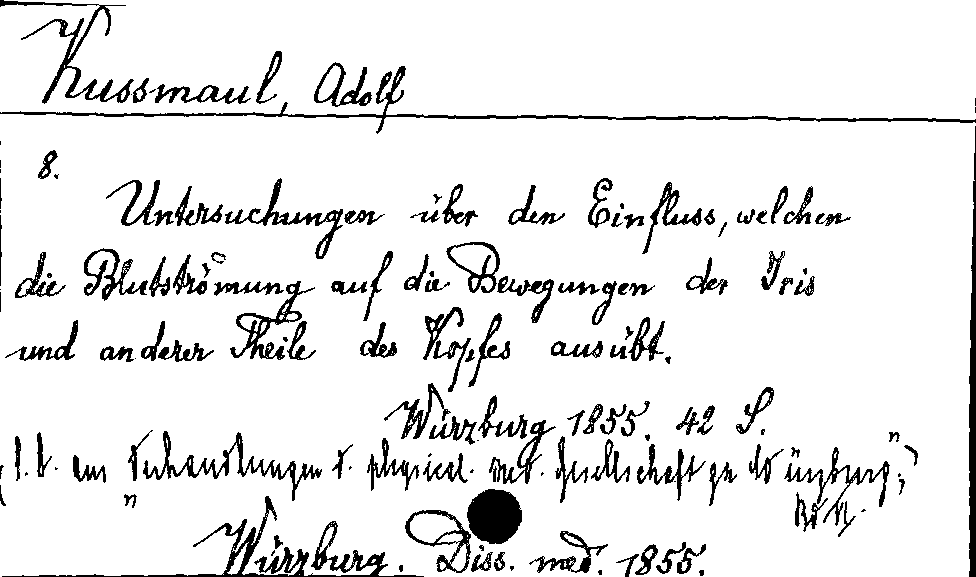 Kussmaul, Adolf
8.
Untersuchungen über den Einfluss, welchen
die Blutströmung auf die Bewegungen der Iris
und anderer Theile des Kopfes ausübt.
Würzburg 1855. 42 S.
aus "Verhandlungen d. physical. med. Gesellschaft zu Würzburg",
Bd VI.
Würzburg. Diss. med. 1855.